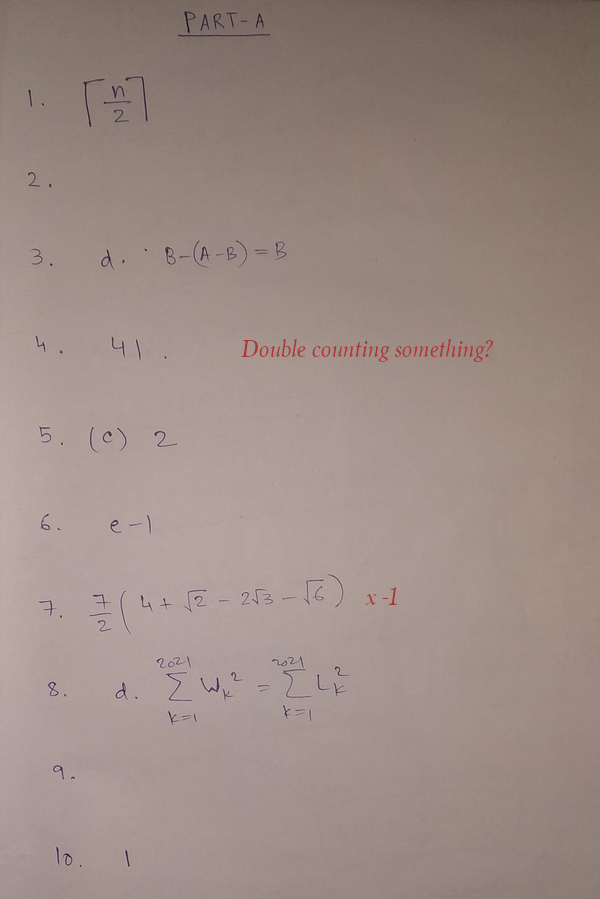 PART-A
1. ⌈n/2⌉
2.
3. d. B-(A-B) = B
4. 41. Double counting something?
5. (c) 2
6. e-1
7. 7/2 (4 + √2 - 2√3 - √6) x -1
8. d. ∑_{k=1}^{2021} W_k^2 = ∑_{k=1}^{2021} L_k^2
9.
10. 1